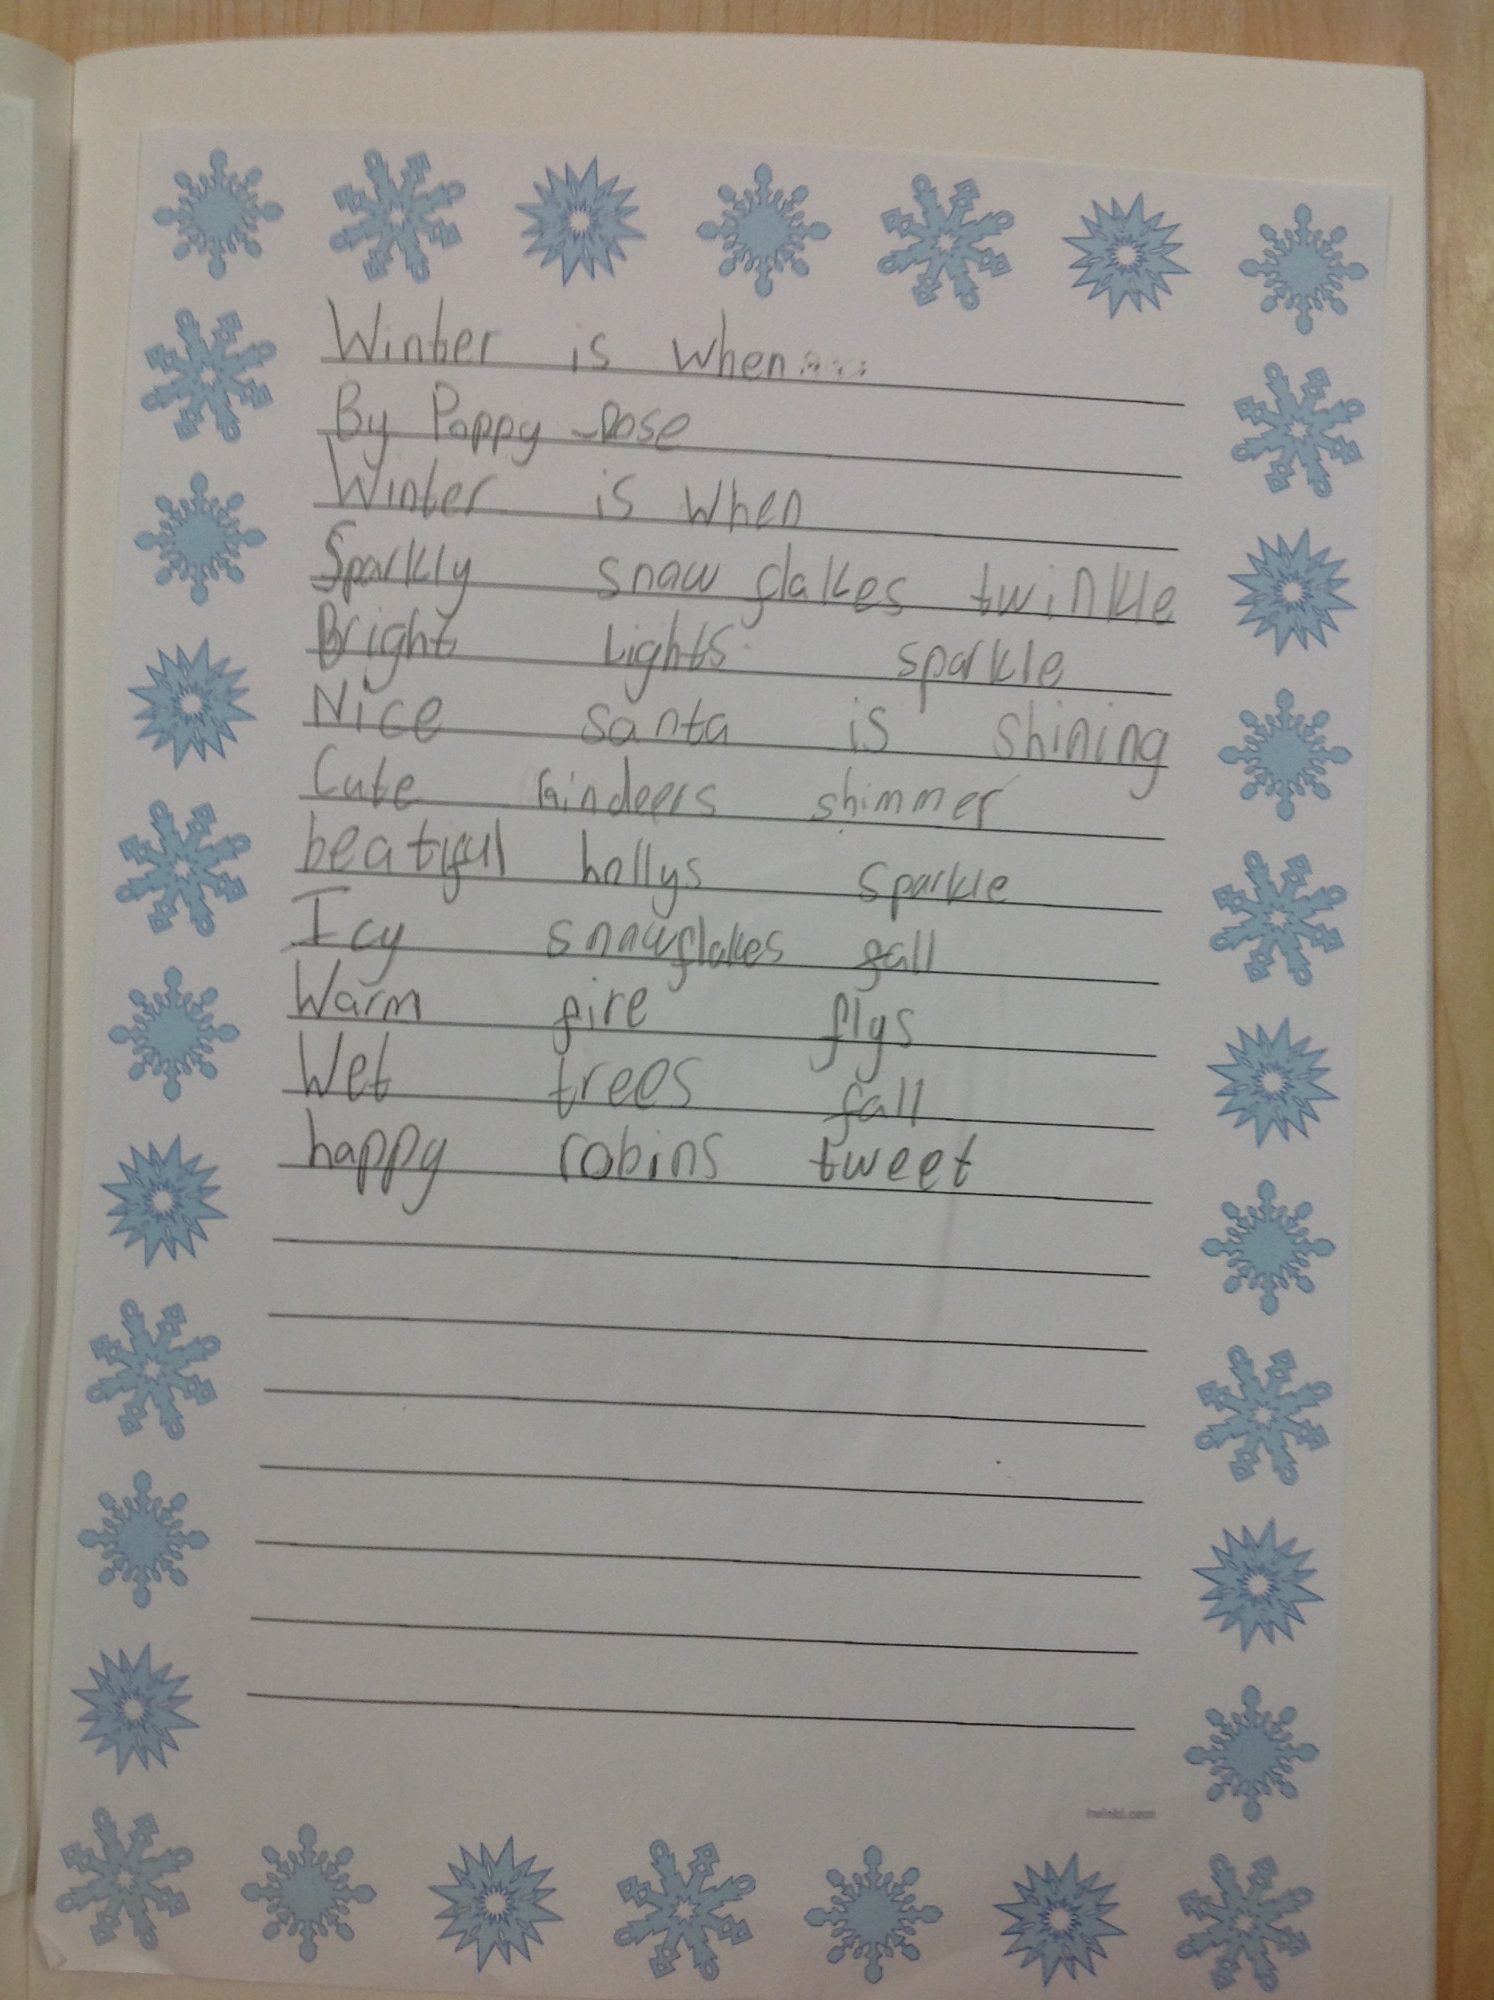 Winter is when.....
By Poppy-Rose
Winter is when
Sparkly snow flakes twinkle
Bright Lights sparkle
Nice santa is shining
Cute raindeers shimmer
beatiful hollys sparkle
Icy snowflakes fall
Warm fire flys
Wet trees fall
happy robins tweet
twinkl.com